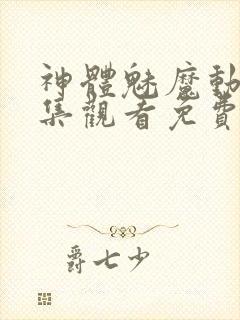 神體魅魔動
集觀看免費
爵七少